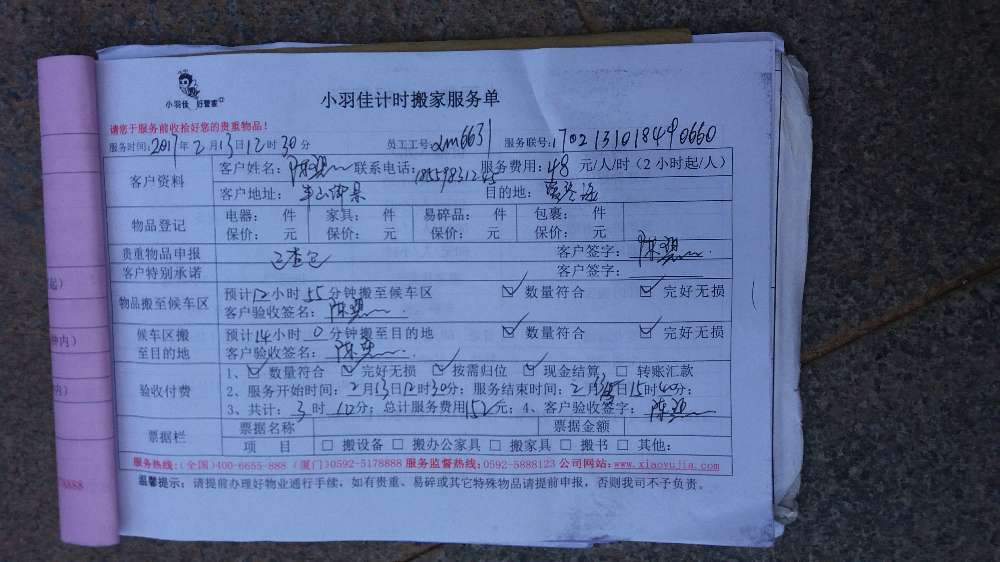 小羽佳 好管家
小羽佳计时搬家服务单
请您于服务前收拾好您的贵重物品！
服务时间：2017年2月13日12时30分 员工工号：dm6631 服务联号：17021310184490660
客户资料
客户姓名：陈 联系电话： 服务费用：48元/人/时（2小时起/人）
客户地址：半山御景 目的地：
物品登记
电器： 件 家具： 件 易碎品： 件 包裹： 件
保价： 元 保价： 元 保价： 元 保价： 元
贵重物品申报 已查包 客户签字：陈
客户特别承诺 客户签字：
物品搬至候车区
预计12小时55分钟搬至候车区 ☑数量符合 ☑完好无损
客户验收签名：陈
候车区搬至目的地
预计14小时0分钟搬至目的地 ☑数量符合 ☑完好无损
客户验收签名：陈
验收付费
1、☑数量符合 ☑完好无损 ☑按需归位 ☑现金结算 □转账汇款
2、服务开始时间：2月13日12时30分；服务结束时间：2月13日15时40分；
3、共计：3时10分；总计服务费用152元；4、客户验收签字：陈
票据栏
票据名称 票据金额
项 目 □搬设备 □搬办公家具 □搬家具 □搬书 □其他：
服务热线：（全国）400-6655-888（厦门）0592-5178888 服务监督热线：0592-5888123 公司网站：www.xiaoyujia.com
温馨提示：请提前办理好物业通行手续，如有贵重、易碎或其它特殊物品请提前申报，否则我司不予负责。
起）
钟内）
内）
78888